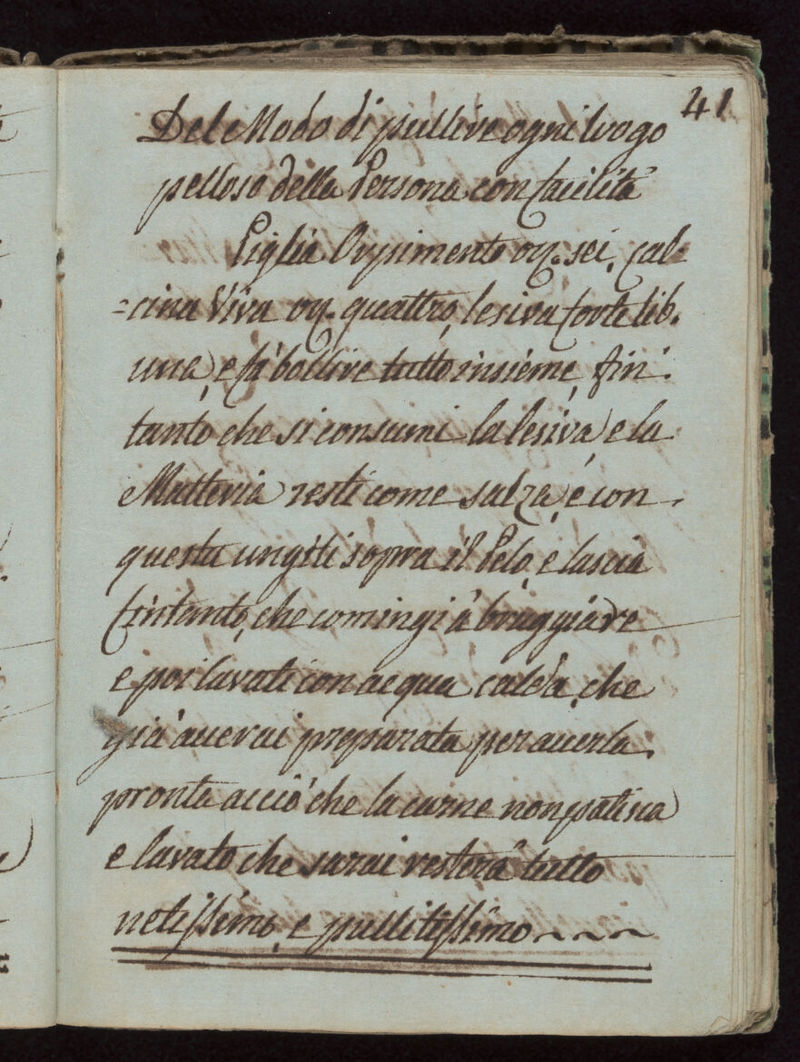 41
Del Modo di pullire ogni luogo
pelloso della Persona con facilità
Piglia Orpimento on. sei, cal=
=cina Viva on. quattro, lesiva forte lib.
una, e fà bollire tutto insieme, fin
tanto che si consumi la lesiva, e la
Matteria resti come salza, e con
questa ungiti sopra il Pelo, e lascia
fintanto, che comingi à bruggiare
e poi lavati con acqua calda, che
già averai preparata per averla
pronta acciò che la carne non patisca
e lavato che sarai resterà tutto
netissimo, e pullitissimo ~ ~ ~ ~